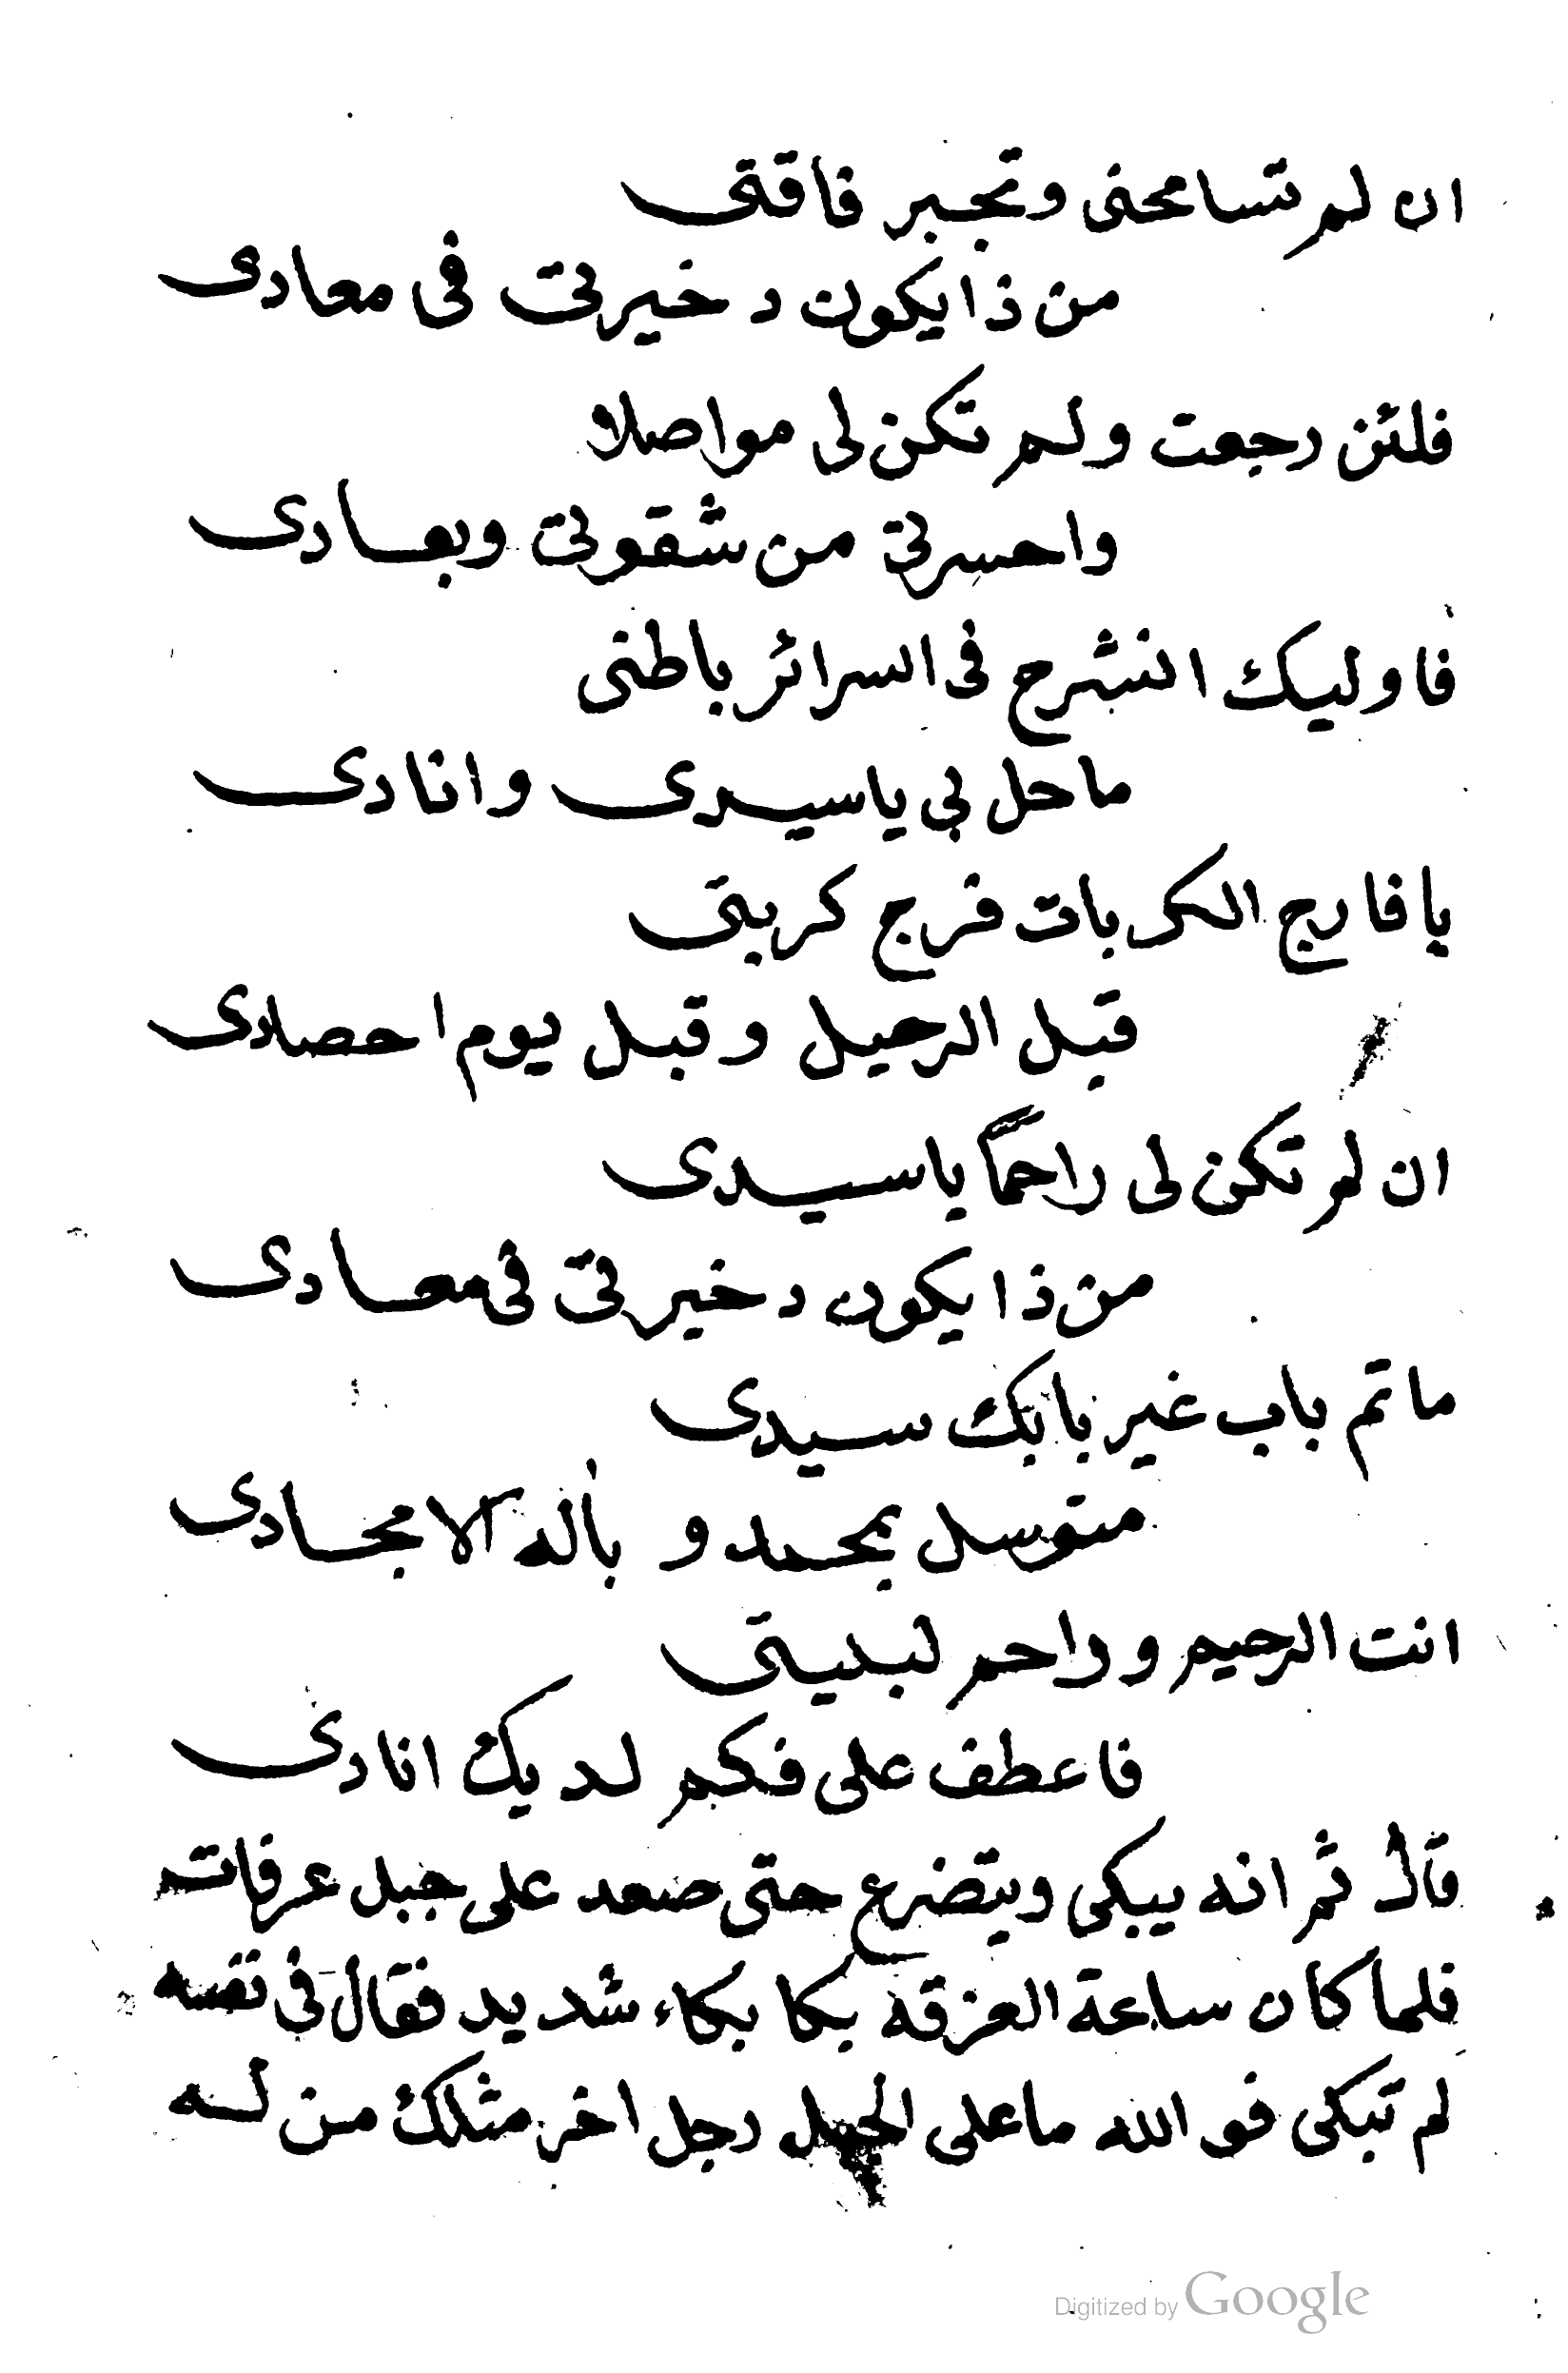 ان لم تسامحنى وتجبر فاقتى
من ذا يكون دخيرتى فى معادى
فلئن رجعت ولم تكن لى مواصلا
واحسرتى من شقوتى وبعادى
فاوليك انشرح فى السرائر باطنى
ما حل بى ياسيدى وانادى
يا فارج الكربات فرج كربتى
قبل الرحيل وقبل يوم احصادى
ان لم تكن لى راحمًا ياسيدى
من ذا يكون دخيرتى فى معادى
ماتم باب غير بابك سيدى
متوسل بمحمد و بأله الامجادى
انت الرحيم وراحم لبديتى
فاعطف على فكم لديك انادى
قال ثم انه يبكى ويتضرع حتى صعد على جبل عرفات
فلما كان ساعة العزقة بكا بكاء شديد فقال فى نفسه
لم تبكى فو الله ما على الجبل رجل اخر مثلك من له
Digitized by Google